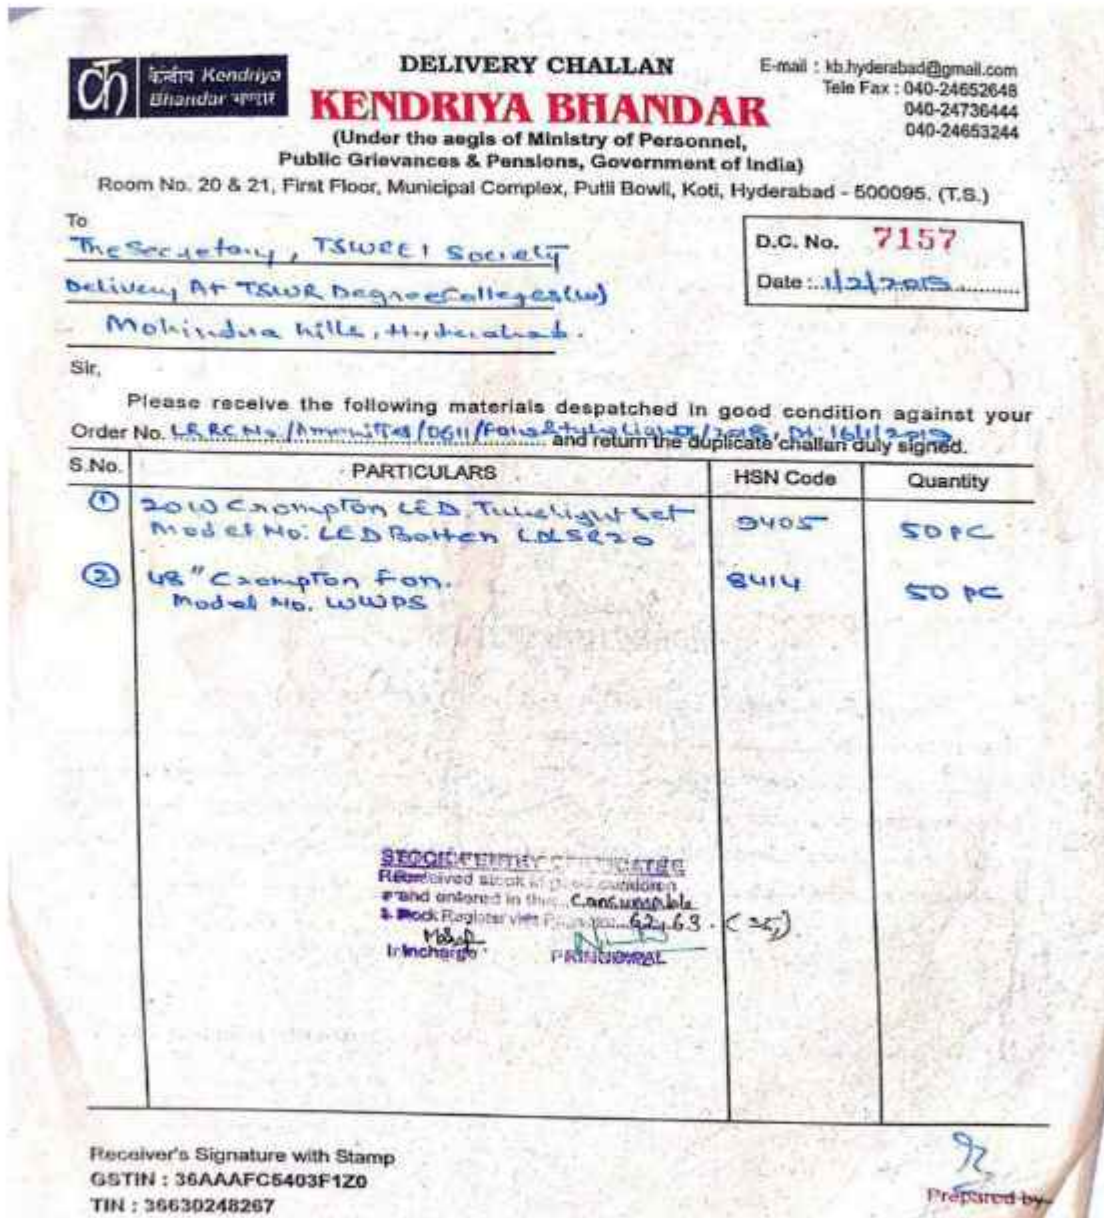 केन्द्रीय Kendriya
Bhandar भण्डार
DELIVERY CHALLAN
KENDRIYA BHANDAR
(Under the aegis of Ministry of Personnel,
Public Grievances & Pensions, Government of India)
Room No. 20 & 21, First Floor, Municipal Complex, Putli Bowli, Koti, Hyderabad - 500095. (T.S.)
E-mail : kb.hyderabad@gmail.com
Tele Fax : 040-24652648
040-24736444
040-24653244
To
The Secretary, TSWREI Society
Delivery At TSWR Degree Colleges (W)
Mohindra hills, Hyderabad.
D.C. No. 7157
Date : 1/2/2019
Sir,
Please receive the following materials despatched in good condition against your
Order No. LR RC No/Amenities/DG11/Fans & tubelights/2018, Dt: 16/1/2019 and return the duplicate challan duly signed.
S.No. PARTICULARS HSN Code Quantity
1 20W Crompton LED Tubelight Set 9405 50 PC
Model No: LED Batten LDLSR20
2 48" Crompton Fan. 8414 50 PC
Model No. WWPS
STOCK ENTRY CERTIFICATE
Received stock in good condition
and entered in the Consumable
Stock Register vide Page No. 62,63. (25)
Incharge PRINCIPAL
Receiver's Signature with Stamp
GSTIN : 36AAAFC5403F1Z0
TIN : 36630248267
Prepared by